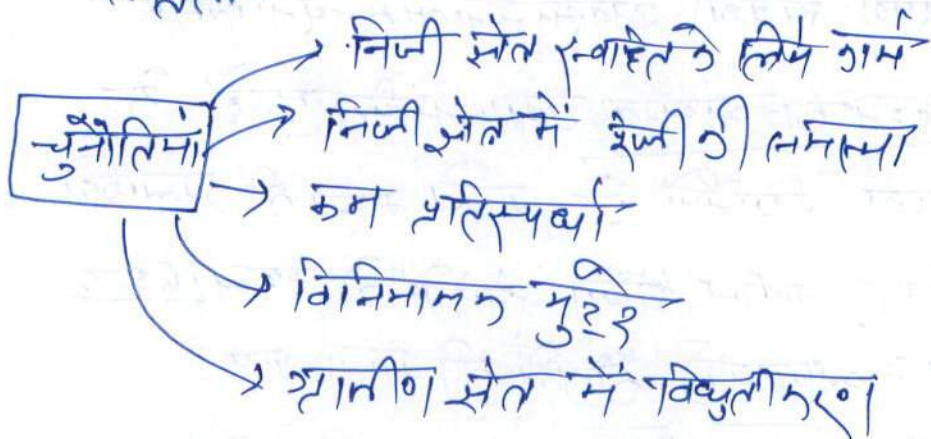 निजी क्षेत्र स्वाहित के लिये कार्य
चुनौतियां
निजी क्षेत्र में पूँजी की समस्या
कम प्रतिस्पर्धा
विनियामक मुद्दे
ग्रामीण क्षेत्र में विद्युतीकरण